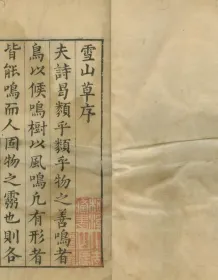 雪山草序
夫詩曷類乎類乎物之善鳴者
鳥以候鳴樹以風鳴凢有形者
皆能鳴而人固物之靈也則各